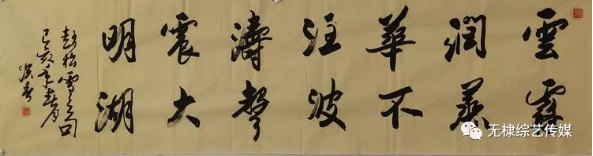 雲霧
潤蒸
華不
注波
濤聲
震大
明湖
趙松雪句
己亥年春月
无棣综艺传媒